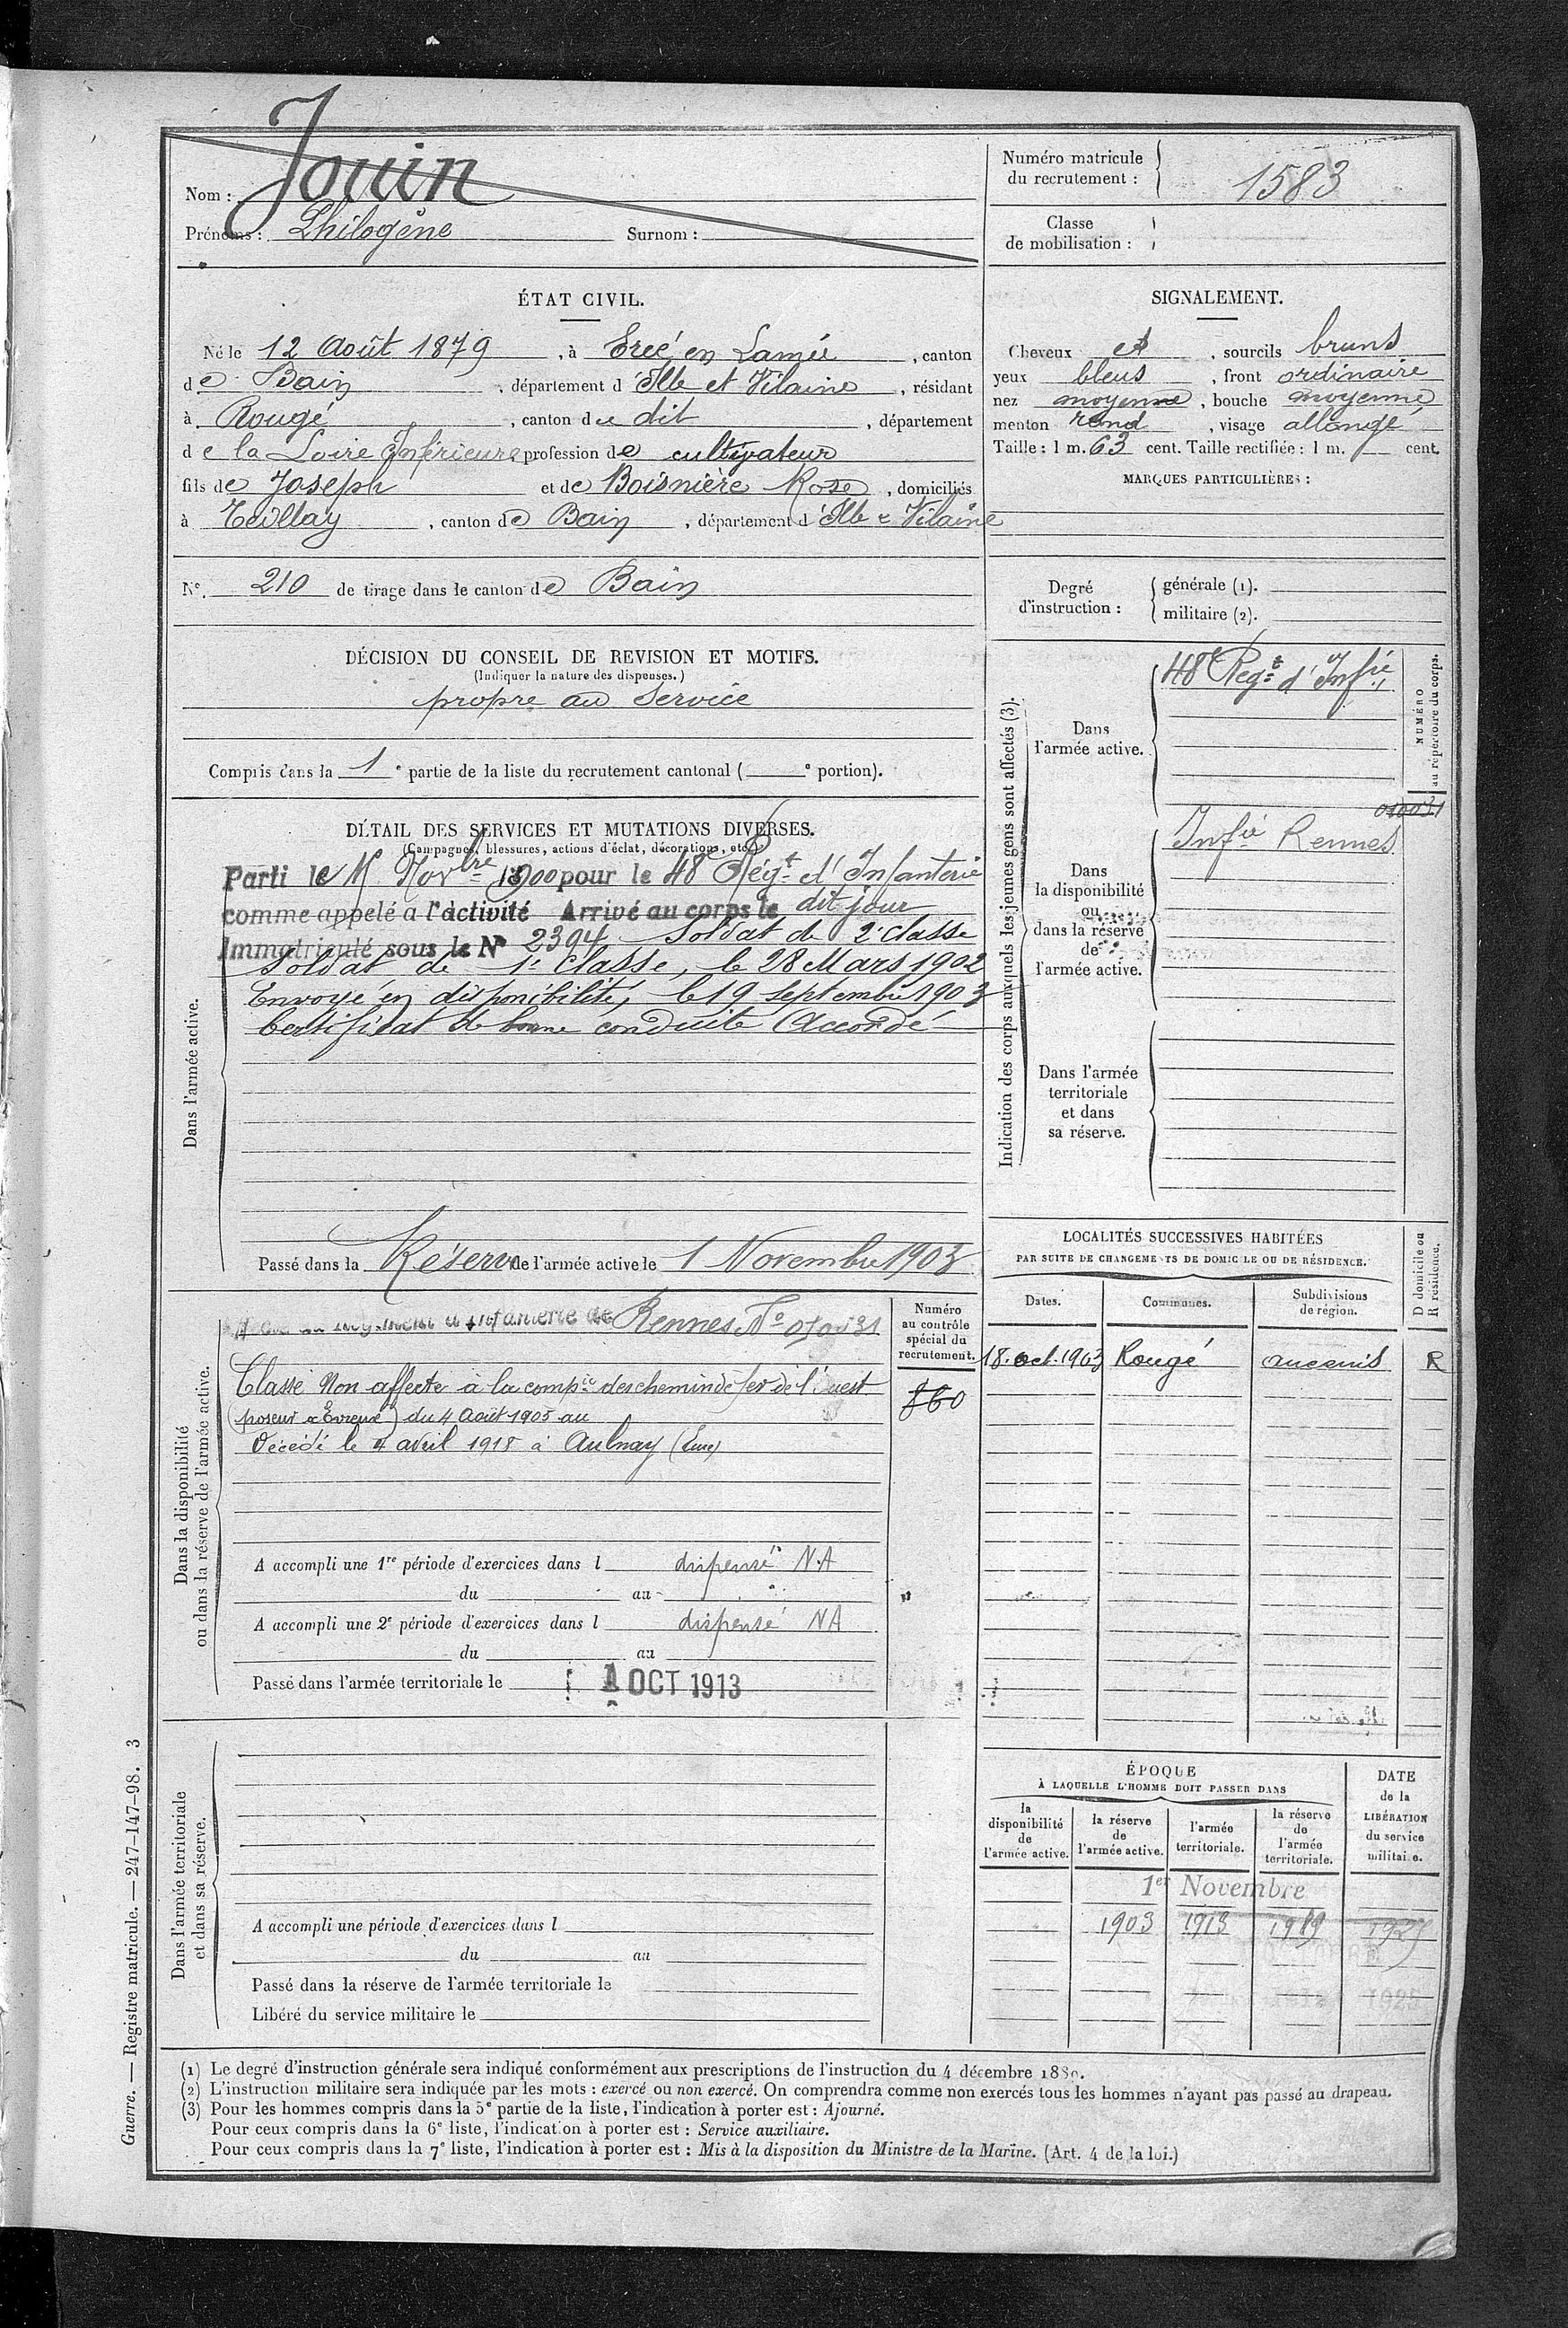 Jouin
Nom :
Prénoms : Philogène Surnom :
Numéro matricule du recrutement : 1583
Classe de mobilisation :
ÉTAT CIVIL.
Né le 12 Août 1879, à Ercé en Lamée, canton
de Bain, département d'Ille et Vilaine, résidant
à Rougé, canton du dit, département
de la Loire Inférieure profession de cultivateur
fils de Joseph et de Boisnière Rose, domiciliés
à Teillay, canton de Bain, département d'Ille & Vilaine
N°. 210 de tirage dans le canton de Bain
SIGNALEMENT.
Cheveux et, sourcils bruns
yeux bleus, front ordinaire
nez moyenne, bouche moyenne
menton rond, visage allongé
Taille : 1 m. 63 cent. Taille rectifiée : 1 m. cent.
MARQUES PARTICULIÈRES :
Degré d'instruction : générale (1).
militaire (2).
DÉCISION DU CONSEIL DE REVISION ET MOTIFS.
(Indiquer la nature des dispenses.)
propre au service
Compris dans la 1e partie de la liste du recrutement cantonal ( e portion).
DÉTAIL DES SERVICES ET MUTATIONS DIVERSES.
(Campagnes, blessures, actions d'éclat, décorations, etc.)
Dans l'armée active.
Parti le Novbre 1900 pour le 48 Régt d'Infanterie
comme appelé à l'activité Arrivé au corps le dit jour
Immatriculé sous le N° 2394 Soldat de 2e classe
Soldat de 1e classe, le 28 Mars 1902
Envoyé en disponibilité, le 19 septembre 1903
Certificat de bonne conduite Accordé
Passé dans la Réserve de l'armée active le 1 Novembre 1903
Indication des corps auxquels les jeunes gens sont affectés (3).
NUMÉRO au répertoire du corps.
Dans l'armée active.
48e Regt d'Infie
010031
Dans la disponibilité ou dans la réserve de l'armée active.
Infie Rennes
Dans l'armée territoriale et dans sa réserve.
LOCALITÉS SUCCESSIVES HABITÉES
PAR SUITE DE CHANGEMENTS DE DOMICILE OU DE RÉSIDENCE.
D domicile ou R résidence.
Dates. Communes. Subdivisions de région.
18. oct. 1903 Rougé Ancenis R
Dans la disponibilité ou dans la réserve de l'armée active.
Numéro au contrôle spécial du recrutement.
d'infanterie de Rennes No
Classé Non affecté à la compie des chemin de fer de l'Ouest
860
(poseur à Evreux) du 4 Août 1905 au
Décédé le 4 avril 1918 à Aulnay (Eure)
A accompli une 1re période d'exercices dans l dispensé N.A
du au
A accompli une 2e période d'exercices dans l dispensé NA
du au
Passé dans l'armée territoriale le 1 OCT 1913
Dans l'armée territoriale et dans sa réserve.
A accompli une période d'exercices dans l
du au
Passé dans la réserve de l'armée territoriale le
Libéré du service militaire le
ÉPOQUE
À LAQUELLE L'HOMME DOIT PASSER DANS
la disponibilité de l'armée active. la réserve de l'armée active. l'armée territoriale. la réserve de l'armée territoriale.
DATE de la LIBÉRATION du service militaire.
1er Novembre
1903 1913 1919 1925
Guerre. — Registre matricule. — 247-147-98. 3
(1) Le degré d'instruction générale sera indiqué conformément aux prescriptions de l'instruction du 4 décembre 1889.
(2) L'instruction militaire sera indiquée par les mots : exercé ou non exercé. On comprendra comme non exercés tous les hommes n'ayant pas passé au drapeau.
(3) Pour les hommes compris dans la 5e partie de la liste, l'indication à porter est : Ajourné.
Pour ceux compris dans la 6e liste, l'indication à porter est : Service auxiliaire.
Pour ceux compris dans la 7e liste, l'indication à porter est : Mis à la disposition du Ministre de la Marine. (Art. 4 de la loi.)